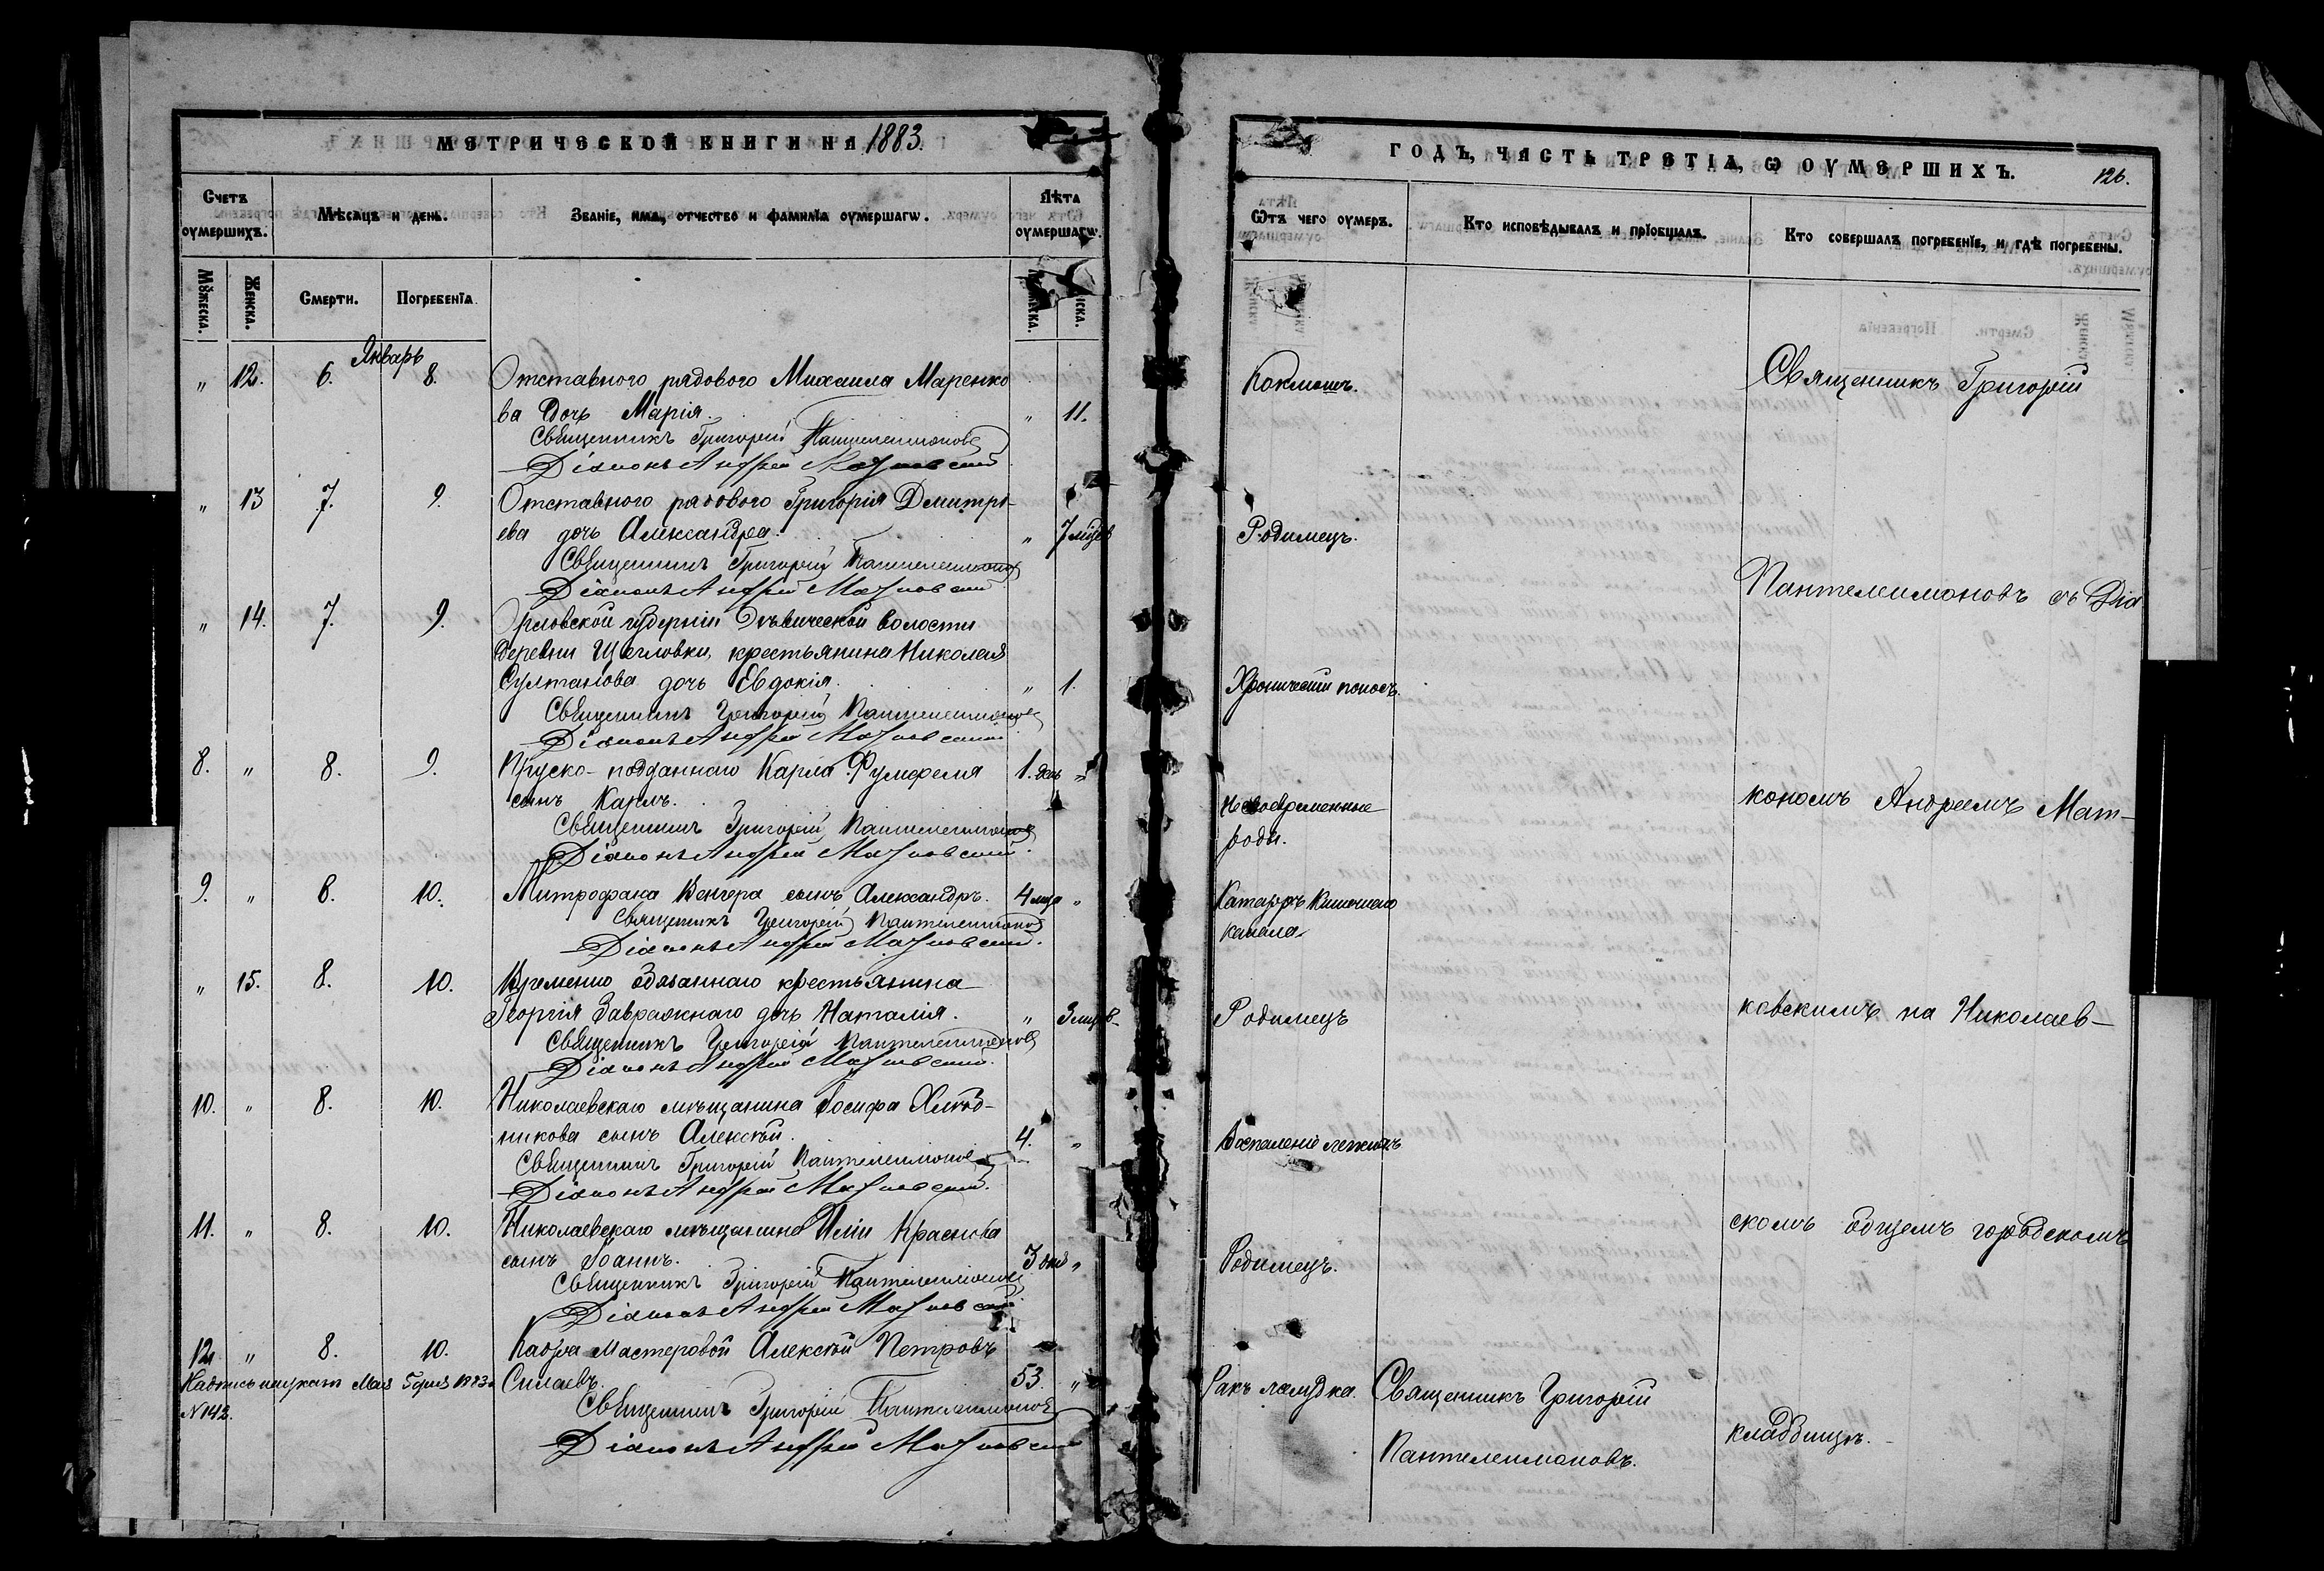 МЕТРИЧЕСКОЙ КНИГИ НА 1883.
Счетъ оумершихъ.
Мѣсяцъ и день.
Званіе, имя, отчество и фамилія оумершагѡ.
Лѣта оумершагѡ.
Мꙋжеска.
Женска.
Смерти.
Погребенїа.
Январь
" 12. 6. 8. Отставного рядового Михаила Маренко
ва дочь Марія. " 11.
Священникъ Григорій Пантелеимоновъ
Діаконъ Андрей Матковскій
" 13 7. 9. Отставного рядового Григорія Дмитрі-
ева дочь Александра. " 7 мцев
Священникъ Григорій Пантелеимоновъ
Діаконъ Андрей Матковскій
" 14. 7. 9. Орловской губерніи волости
деревни Щегловки, крестьянина Николая
Султанова дочь Евдокія. " 1.
Священникъ Григорій Пантелеимоновъ
Діаконъ Андрей Матковскій
8. " 8. 9. Пруско-подданнаго Карла Румфеля 1. день "
сынъ Карлъ.
Священникъ Григорій Пантелеимоновъ
Діаконъ Андрей Матковскій.
9. " 8. 10. Митрофана Венгера сынъ Александръ. 4 мца "
Священникъ Григорій Пантелеимоновъ
Діаконъ Андрей Матковскій.
" 15. 8. 10. Временно обязаннаго крестьянина
Георгія Завражнаго дочь Наталія. " 3 мцев
Священникъ Григорій Пантелеимоновъ
Діаконъ Андрей Матковскій.
10. " 8. 10. Николаевскаго мѣщанина Іосифа Хлѣбд-
никова сынъ Алексѣй. 4. "
Священникъ Григорій Пантелеимоновъ
Діаконъ Андрей Матковскій.
11. " 8. 10. Николаевскаго мѣщанина Иліи Краснова
сынъ Іоаннъ. 3 дня "
Священникъ Григорій Пантелеимоновъ
Діаконъ Андрей Матковскій
12. " 8. 10. Мастеровой Алексѣй Петровъ
Силаевъ. 53. "
Мая 5 дня 1883
N 142.
Священникъ Григорій Пантелеимоновъ
Діаконъ Андрей Матковскій
ГОДЪ, ЧАСТЬ ТРЕТІА, Ѡ ОУМЕРШИХЪ.
126.
Ѿтъ чего оумеръ.
Кто исповѣдывалъ и прїобщалъ.
Кто совершалъ погребенїе, и гдѣ погребены.
Коклюшъ.
Священникъ Григорій
Родимецъ.
Пантелеимоновъ съ Діа
Хроническій поносъ.
Несвоевременные
роды.
кономъ Андреемъ Мат-
Катарръ Кишечнаго
канала
Родимецъ
ковскимъ на Николаев-
Воспаленіе легкихъ
скомъ общемъ городскомъ
Родимецъ.
Ракъ желудка. Священникъ Григорій
Пантелеимоновъ.
кладбищѣ.